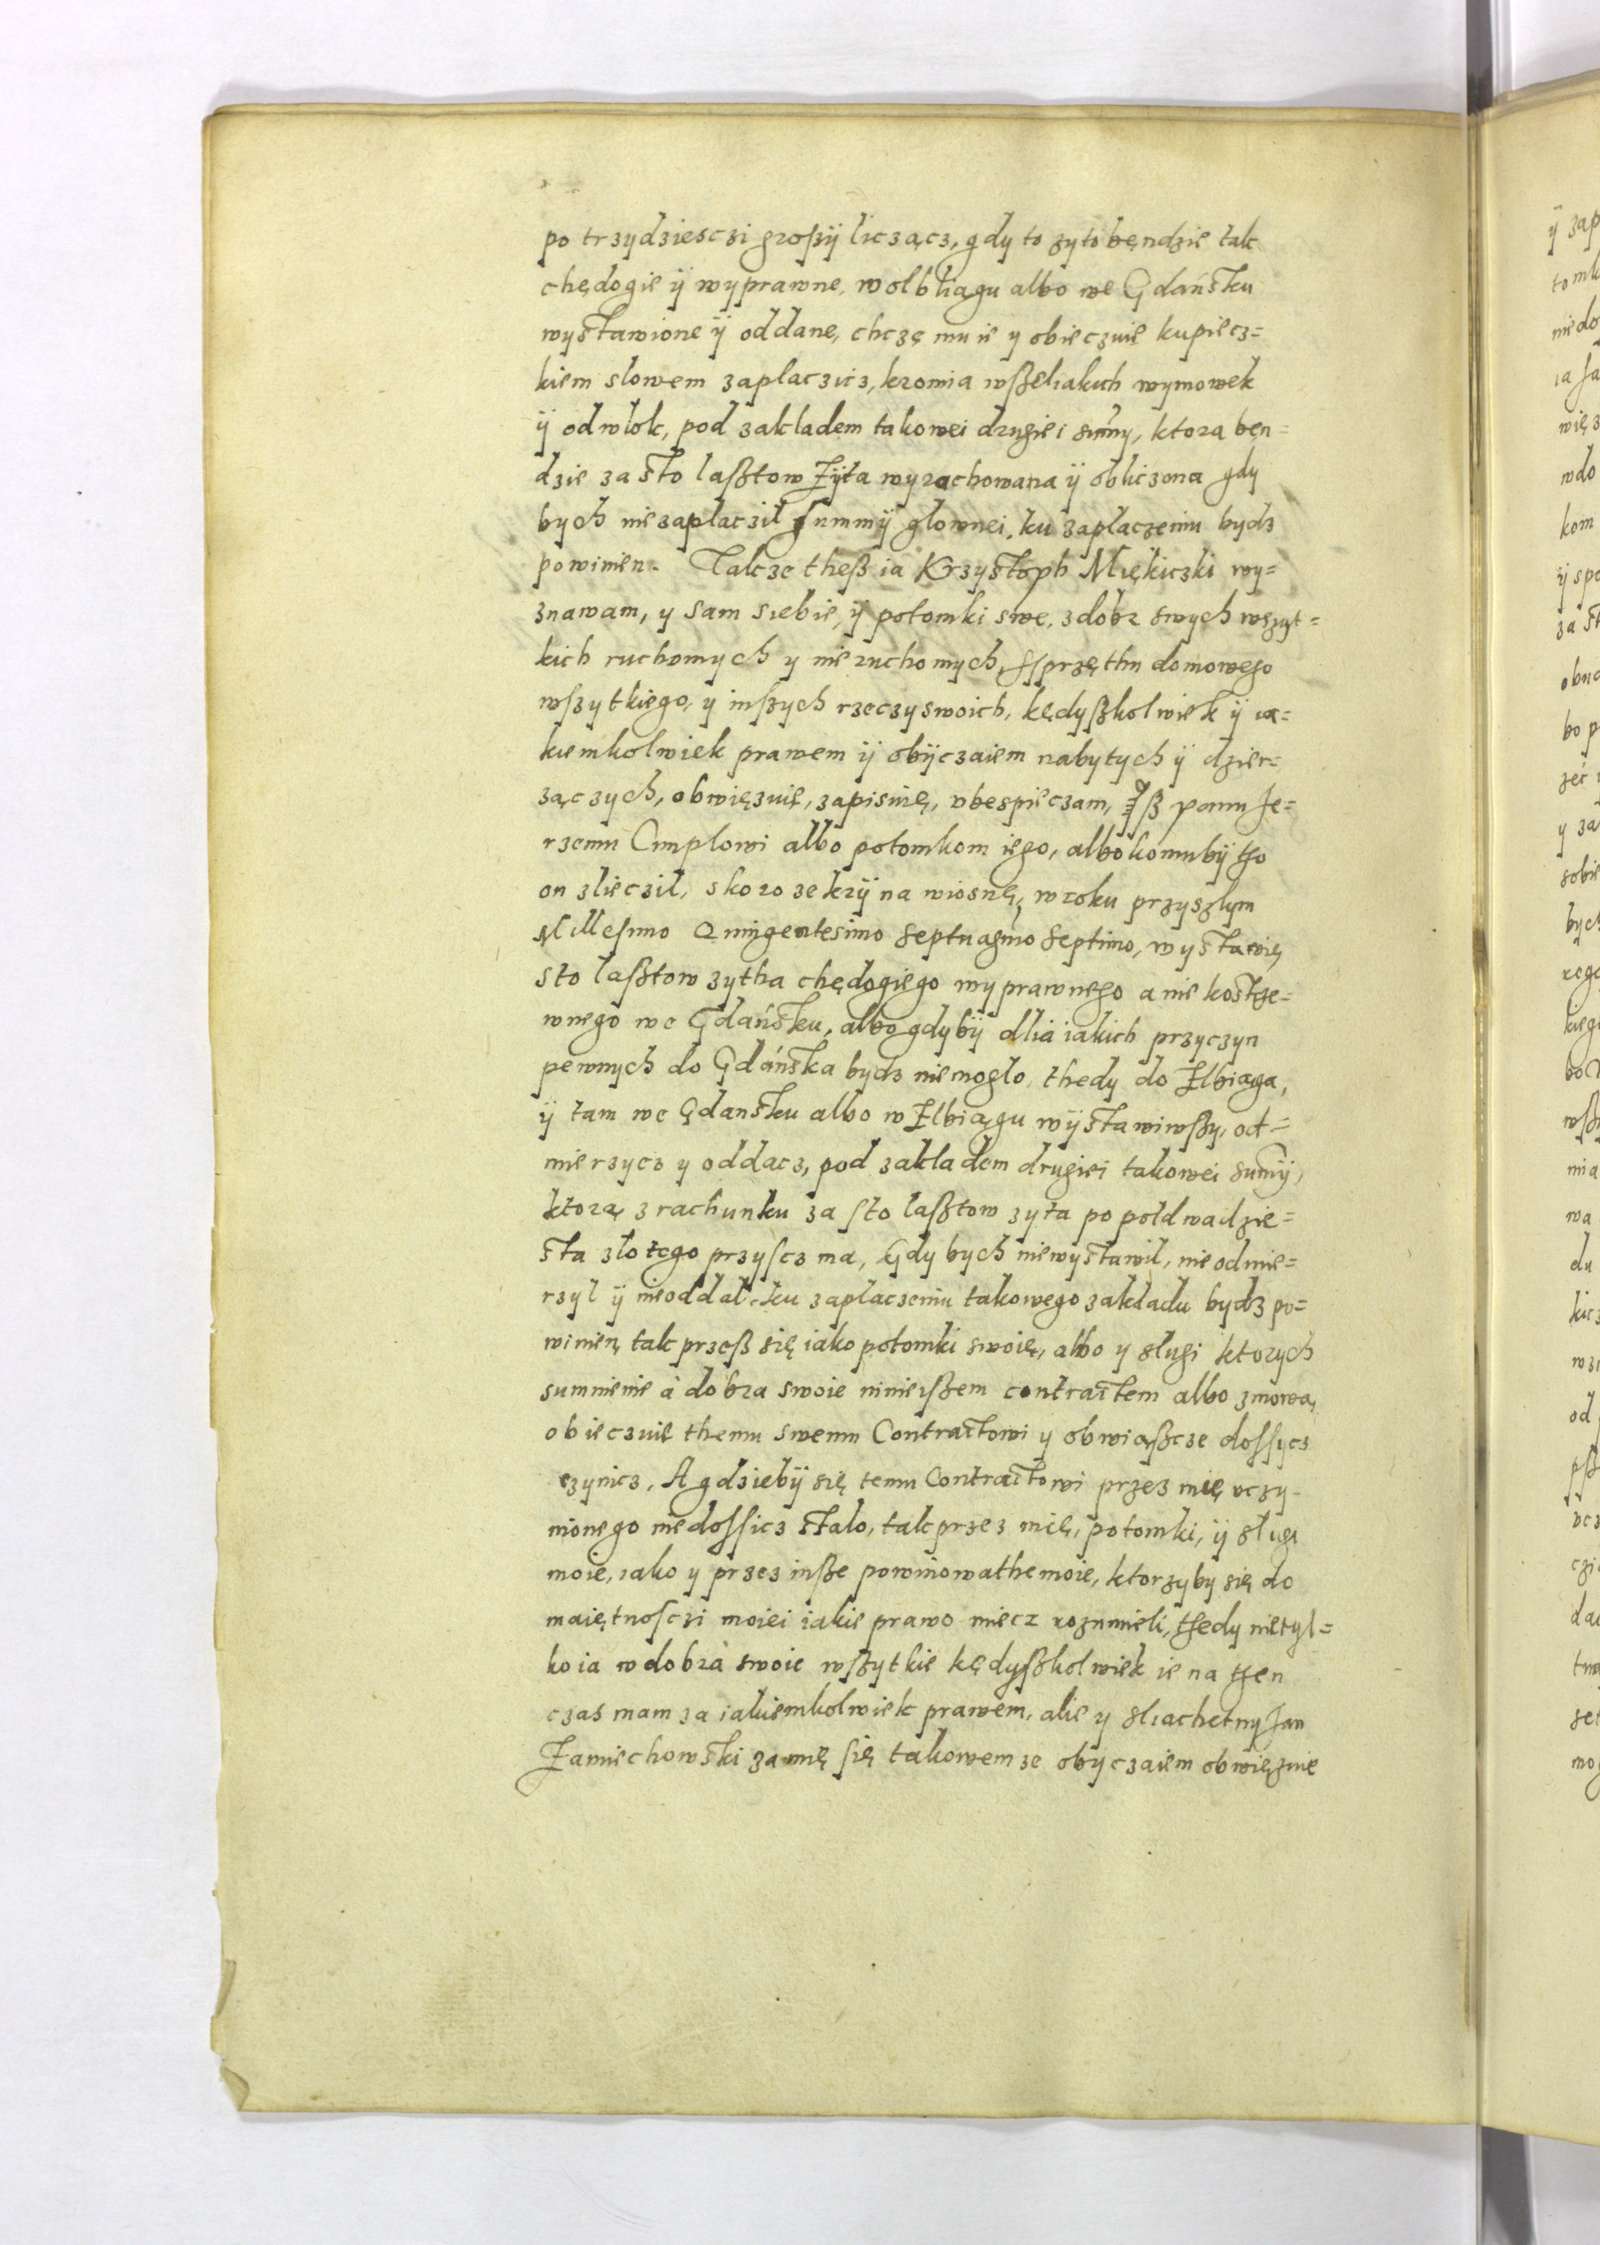 po trzydziesczi groszÿ licząncz, gdy to zyto bęndzie tak
chędogie ÿ wyprawne, wolbliągu albo we Gdańsku
wystawione ÿ oddane, chczę mu ie y obieczuię kupiecz=
kiem slowem zaplaczicz, kromia wßeliakich wymowek
ÿ odwlok, pod zakladem takowei drugiei summy, ktora bęn=
dzie za sto laßtow Żÿta wyrachowana ÿ obliczona gdy
bych nie zaplaczil summÿ glownei, ku zaplaczeniu bydz
powinien. Takze theß ia Krzysztoph Miękiczki wy=
znawam, y sam siebie, ÿ potomki swe, z dobr swych wszyt=
kich ruchomych y nieruchomych, sprzęthu domowego
wszytkiego, y inszych rzeczy swoich, kędyßkolwiek ÿ ia=
kiemkolwiek prawem ÿ obÿczaiem nabytych ÿ dzier=
ząnczych, obwięzuię, zapisuię, vbespieczam, Iß panu Je=
rzemu Cimplowi albo potomkom iego, albo komubÿ tho
on zlieczil, skoro ze krÿ na wiosnę, w roku przyszlym
Millesimo Quingentesimo Septuagmo Septimo, wystawię
sto laßtow zytha chędogiego wyprawnego a nie kostrze=
wnego we Gdańsku, albo gdybÿ dlia iakich przyczyn
pewnych do Gdańska bydz niemoglo, thedy do Elbiąga,
ÿ tam we Gdansku albo w Elbiągu wÿstawiwßy, od=
mierzycz y oddacz, pod zakladem drugiei takowei sumÿ,
ktorą z rachunku za sto laßtow zyta po poldwadzie=
sta zlotego przyscz ma, Gdy bych niewystawil, nie odmie=
rzyl ÿ nieoddal, ku zaplaczeniu takowego zakladu bydz po=
winien, tak przeß się iako potomki swoię, albo y slugi ktorych
sumnienie à dobra swoie ninieißem contractem albo zmową,
obieczuię themu swemu Contractowi y obwiąßcze dossycz
czynicz, A gdziebÿ się temu Contractowi przez mię vczy=
nionego niedossicz stalo, tak przez mię, potomki, ÿ slugi
moie, iako y przez inße powinowathe moie, ktorzyby się do
maiętnosczi moiei iakie prawo miecz rozumieli, thedy nietyl=
ko ia w dobrà swoie wßytkie kędyßkolwiek ie na then
czas mam za iakiemkolwiek prawem, alie y sliachetny Jan
Zamiechowski za mię się takowem ze obyczaiem obwięzuie